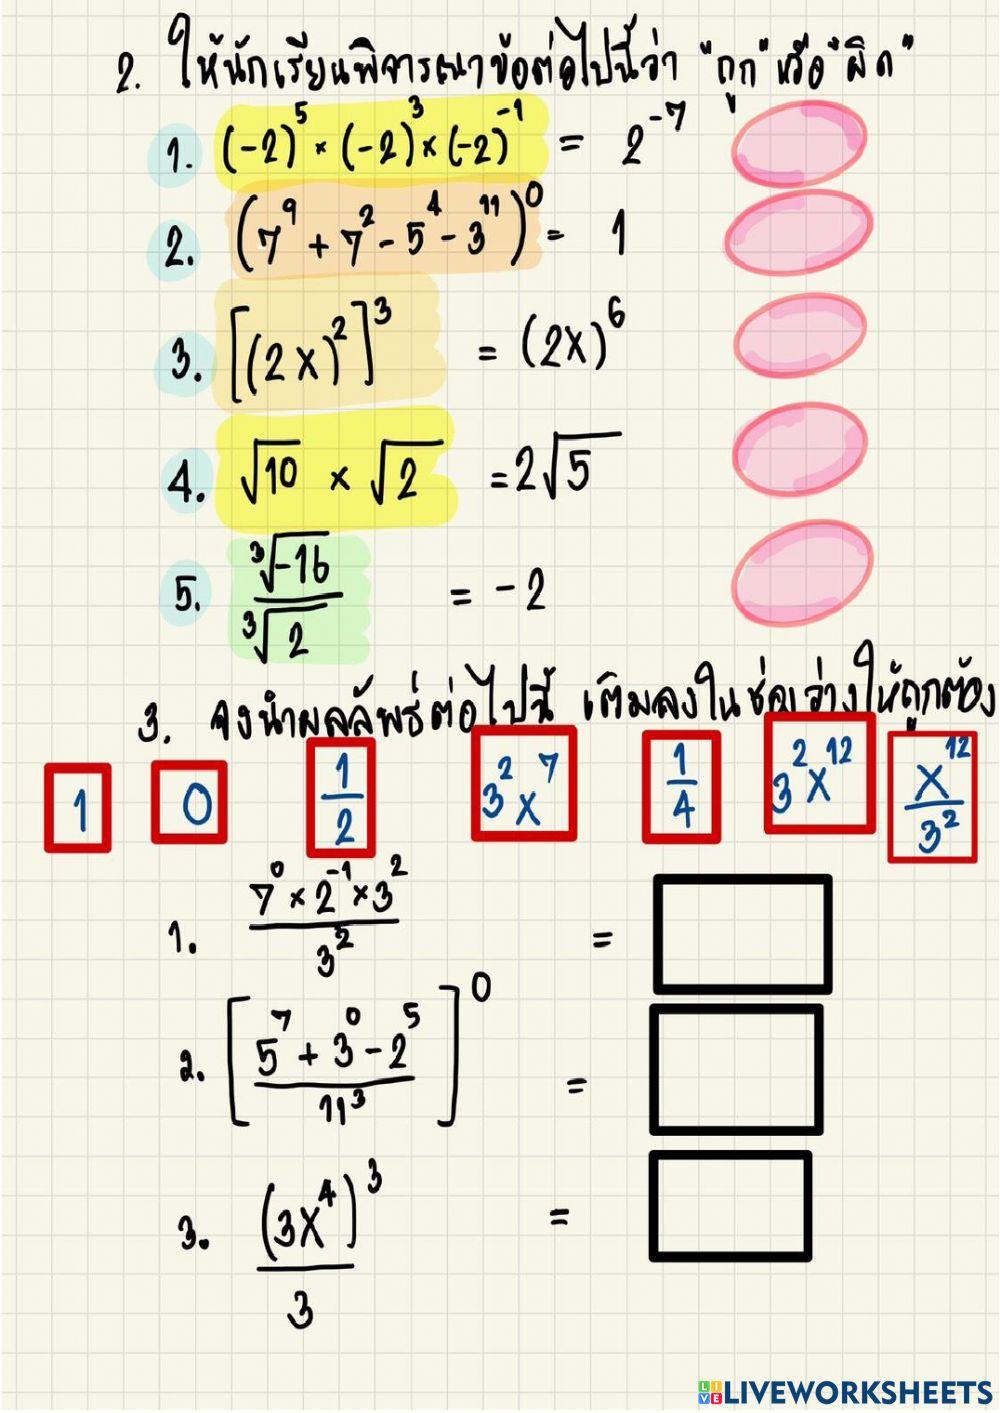 2. ให้นักเรียนพิจารณาข้อต่อไปนี้ว่า "ถูก" หรือ "ผิด"
1. (-2)⁵ × (-2)³ × (-2)⁻¹ = 2⁻⁷
2. (7⁹ + 7² - 5⁴ - 3¹¹)⁰ = 1
3. [(2x)²]³ = (2x)⁶
4. √10 × √2 = 2√5
5. ∛-16 / ∛2 = -2
3. จงนำผลลัพธ์ต่อไปนี้ เติมลงในช่องว่างให้ถูกต้อง
1 0 1/2 3²x⁷ 1/4 3²x¹² x¹²/3²
1. (7⁰ × 2⁻¹ × 3²) / 3² =
2. [(5⁷ + 3⁰ - 2⁵) / 11³]⁰ =
3. (3x⁴)³ / 3 =
LIVEWORKSHEETS